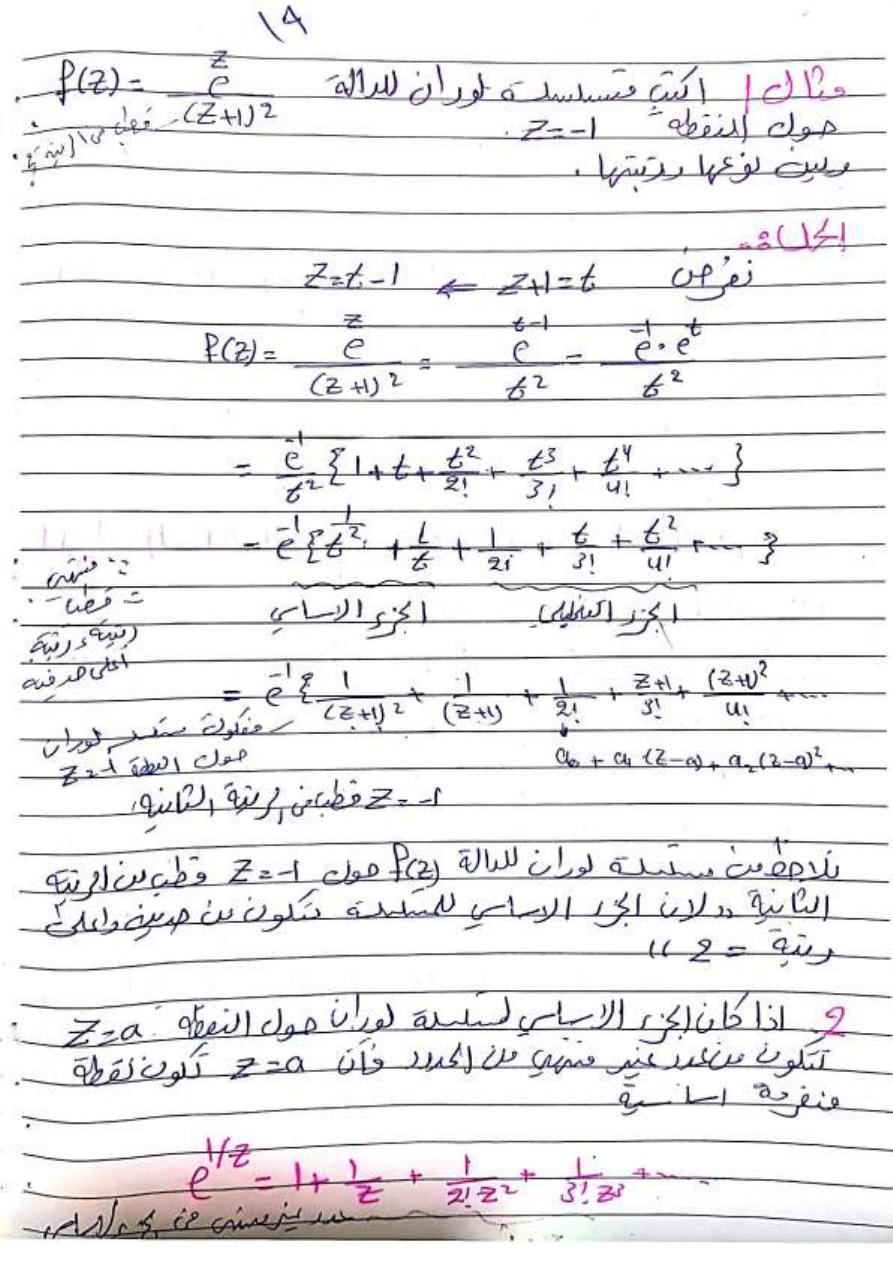 ١٤
مثال / اكتب متسلسلة لوران للدالة f(z) = e^z / (z+1)^2
حول النقطة z = -1
وبين نوعها ورتبتها .
الحل :-
نفرض z+1 = t ⇐ z = t-1
f(z) = e^z / (z+1)^2 = e^{t-1} / t^2 = e^{-1} . e^t / t^2
= e^{-1} / t^2 { 1 + t + t^2/2! + t^3/3! + t^4/4! + .... }
= e^{-1} { 1/t^2 + 1/t + 1/2! + t/3! + t^2/4! + .... }
∵ منتهي
∴ قطب
الجزء التحليلي الجزء الاساسي
اعلى حد فيه
= e^{-1} { 1/(z+1)^2 + 1/(z+1) + 1/2! + z+1/3! + (z+1)^2/4! + ....
a0 + a1 (z-a) + a2 (z-a)^2 + ...
مفكوك متسلسلة لوران
حول النقطة z = -1
z = -1 قطب من الرتبة الثانية
نلاحظ من متسلسلة لوران للدالة f(z) حول z = -1 قطب من الرتبة
الثانية ,, لان الجزء الاساسي للمتسلسلة تتكون من حدين واعلى
رتبة = 2 ,,
2. اذا كان الجزء الاساسي لمتسلسلة لوران حول النقطة z = a
تتكون من عدد غير منتهي من الحدود فأن z = a تكون نقطة
منفردة اساسية
e^{1/z} = 1 + 1/z + 1/2! z^2 + 1/3! z^3 + ....
عدد غير منتهي من